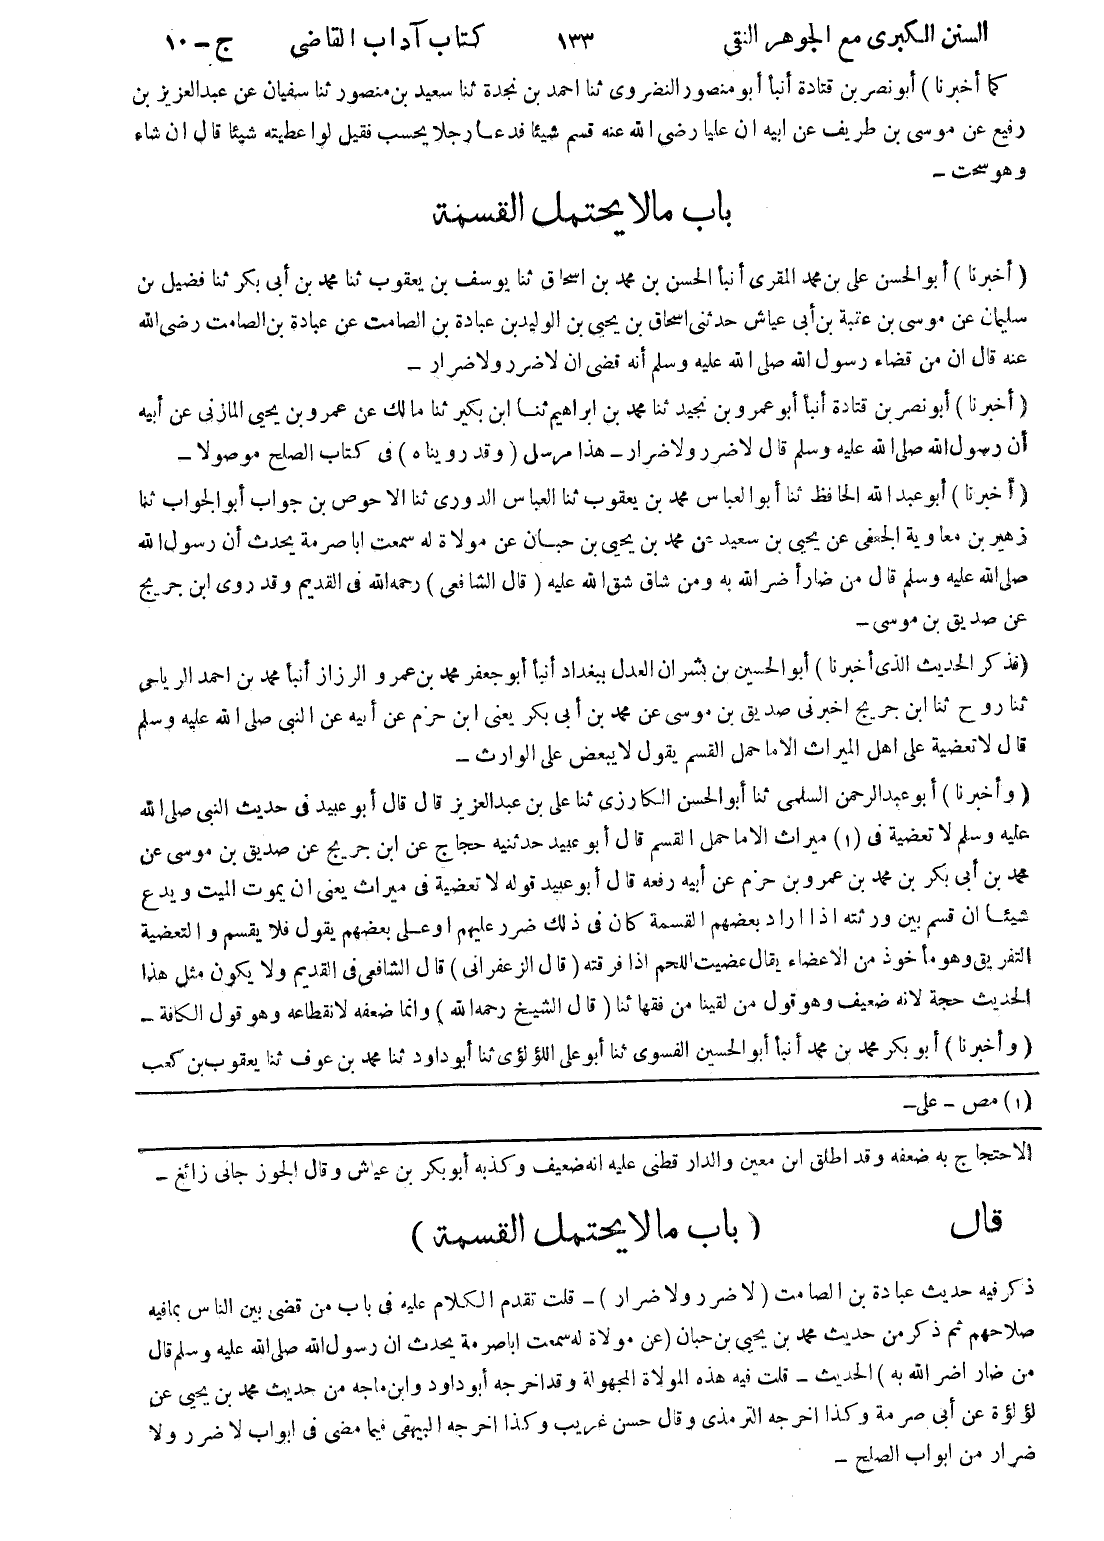 السنن الكبرى مع الجوهر النقى ١٣٣ كتاب آداب القاضى ج - ١٠
كما أخبرنا ) أبو نصر بن قتادة أنبأ أبو منصور النضروى ثنا احمد بن نجدة ثنا سعيد بن منصور ثنا سفيان عن عبد العزيز بن
رفيع عن موسى بن طريف عن ابيه ان عليا رضى الله عنه قسم شيئا فدعا رجلا يحسب فقيل لو اعطيته شيئا قال ان شاء
وهو سحت -
باب مالا يحتمل القسمة
( أخبرنا ) أبو الحسن على بن محمد المقرى أنبأ الحسن بن محمد بن اسحاق ثنا يوسف بن يعقوب ثنا محمد بن أبى بكر ثنا فضيل بن
سليمان عن موسى بن عقبة بن أبى عياش حدثنى اسحاق بن يحيى بن الوليد بن عبادة بن الصامت عن عبادة بن الصامت رضى الله
عنه قال ان من قضاء رسول الله صلى الله عليه وسلم أنه قضى ان لا ضرر ولا ضرار -
( أخبرنا ) أبو نصر بن قتادة أنبأ أبو عمرو بن نجيد ثنا محمد بن ابراهيم ثنا ابن بكير ثنا مالك عن عمرو بن يحيى المازنى عن أبيه
أن رسول الله صلى الله عليه وسلم قال لا ضرر ولا ضرار - هذا مرسل ( وقد رويناه ) فى كتاب الصلح موصولا -
( أخبرنا ) أبو عبد الله الحافظ ثنا أبو العباس محمد بن يعقوب ثنا العباس الدورى ثنا الاحوص بن جواب أبو الجواب ثنا
زهير بن معاوية الجعفى عن يحيى بن سعيد عن محمد بن يحيى بن حبان عن مولاة له سمعت ابا صرمة يحدث أن رسول الله
صلى الله عليه وسلم قال من ضار أضر الله به ومن شاق شق الله عليه ( قال الشافعى ) رحمه الله فى القديم وقد روى ابن جريج
عن صديق بن موسى -
( فذكر الحديث الذى أخبرنا ) أبو الحسين بن بشران العدل ببغداد أنبأ أبو جعفر محمد بن عمرو الرزاز أنبأ محمد بن احمد الرياحى
ثنا روح ثنا ابن جريج اخبرنى صديق بن موسى عن محمد بن أبى بكر يعنى ابن حزم عن أبيه عن النبى صلى الله عليه وسلم
قال لا تعضية على اهل الميراث الا ما حمل القسم يقول لا يبعض على الوارث -
( وأخبرنا ) أبو عبد الرحمن السلمى ثنا أبو الحسن الكارزى ثنا على بن عبد العزيز قال قال أبو عبيد فى حديث النبى صلى الله
عليه وسلم لا تعضية فى (١) ميراث الا ما حمل القسم قال أبو عبيد حدثنيه حجاج عن ابن جريج عن صديق بن موسى عن
محمد بن أبى بكر بن محمد بن عمرو بن حزم عن أبيه رفعه قال أبو عبيد قوله لا تعضية فى ميراث يعنى ان يموت الميت ويدع
شيئا ان قسم بين ورثته اذا اراد بعضهم القسمة كان فى ذلك ضرر عليهم او على بعضهم يقول فلا يقسم والتعضية
التفريق وهو مأخوذ من الاعضاء يقال عضيت اللحم اذا فرقته ( قال الزعفرانى ) قال الشافعى فى القديم ولا يكون مثل هذا
الحديث حجة لانه ضعيف وهو قول من لقينا من فقهائنا ( قال الشيخ رحمه الله ) وانما ضعفه لانقطاعه وهو قول الكافة -
( وأخبرنا ) أبو بكر محمد بن محمد أنبأ أبو الحسين الفسوى ثنا أبو على اللؤلؤى ثنا أبو داود ثنا محمد بن عوف ثنا يعقوب بن كعب
(١) مص - على -
الاحتجاج به ضعفه وقد اطلق ابن معين والدار قطنى عليه انه ضعيف وكذبه أبو بكر بن عياش وقال الجوز جانى زائغ -
قال ( باب مالا يحتمل القسمة )
ذكر فيه حديث عبادة بن الصامت ( لا ضرر ولا ضرار ) - قلت تقدم الكلام عليه فى باب من قضى بين الناس بما فيه
صلاحهم ثم ذكر من حديث محمد بن يحيى بن حبان ( عن مولاة له سمعت اباصرمة يحدث ان رسول الله صلى الله عليه وسلم قال
من ضار اضر الله به ) الحديث - قلت فيه هذه المولاة المجهولة وقد اخرجه أبو داود وابن ماجه من حديث محمد بن يحيى عن
لؤلؤة عن أبى صرمة وكذا اخرجه الترمذى وقال حسن غريب وكذا اخرجه البيهقى فيما مضى فى ابواب لا ضرر ولا
ضرار من ابواب الصلح -